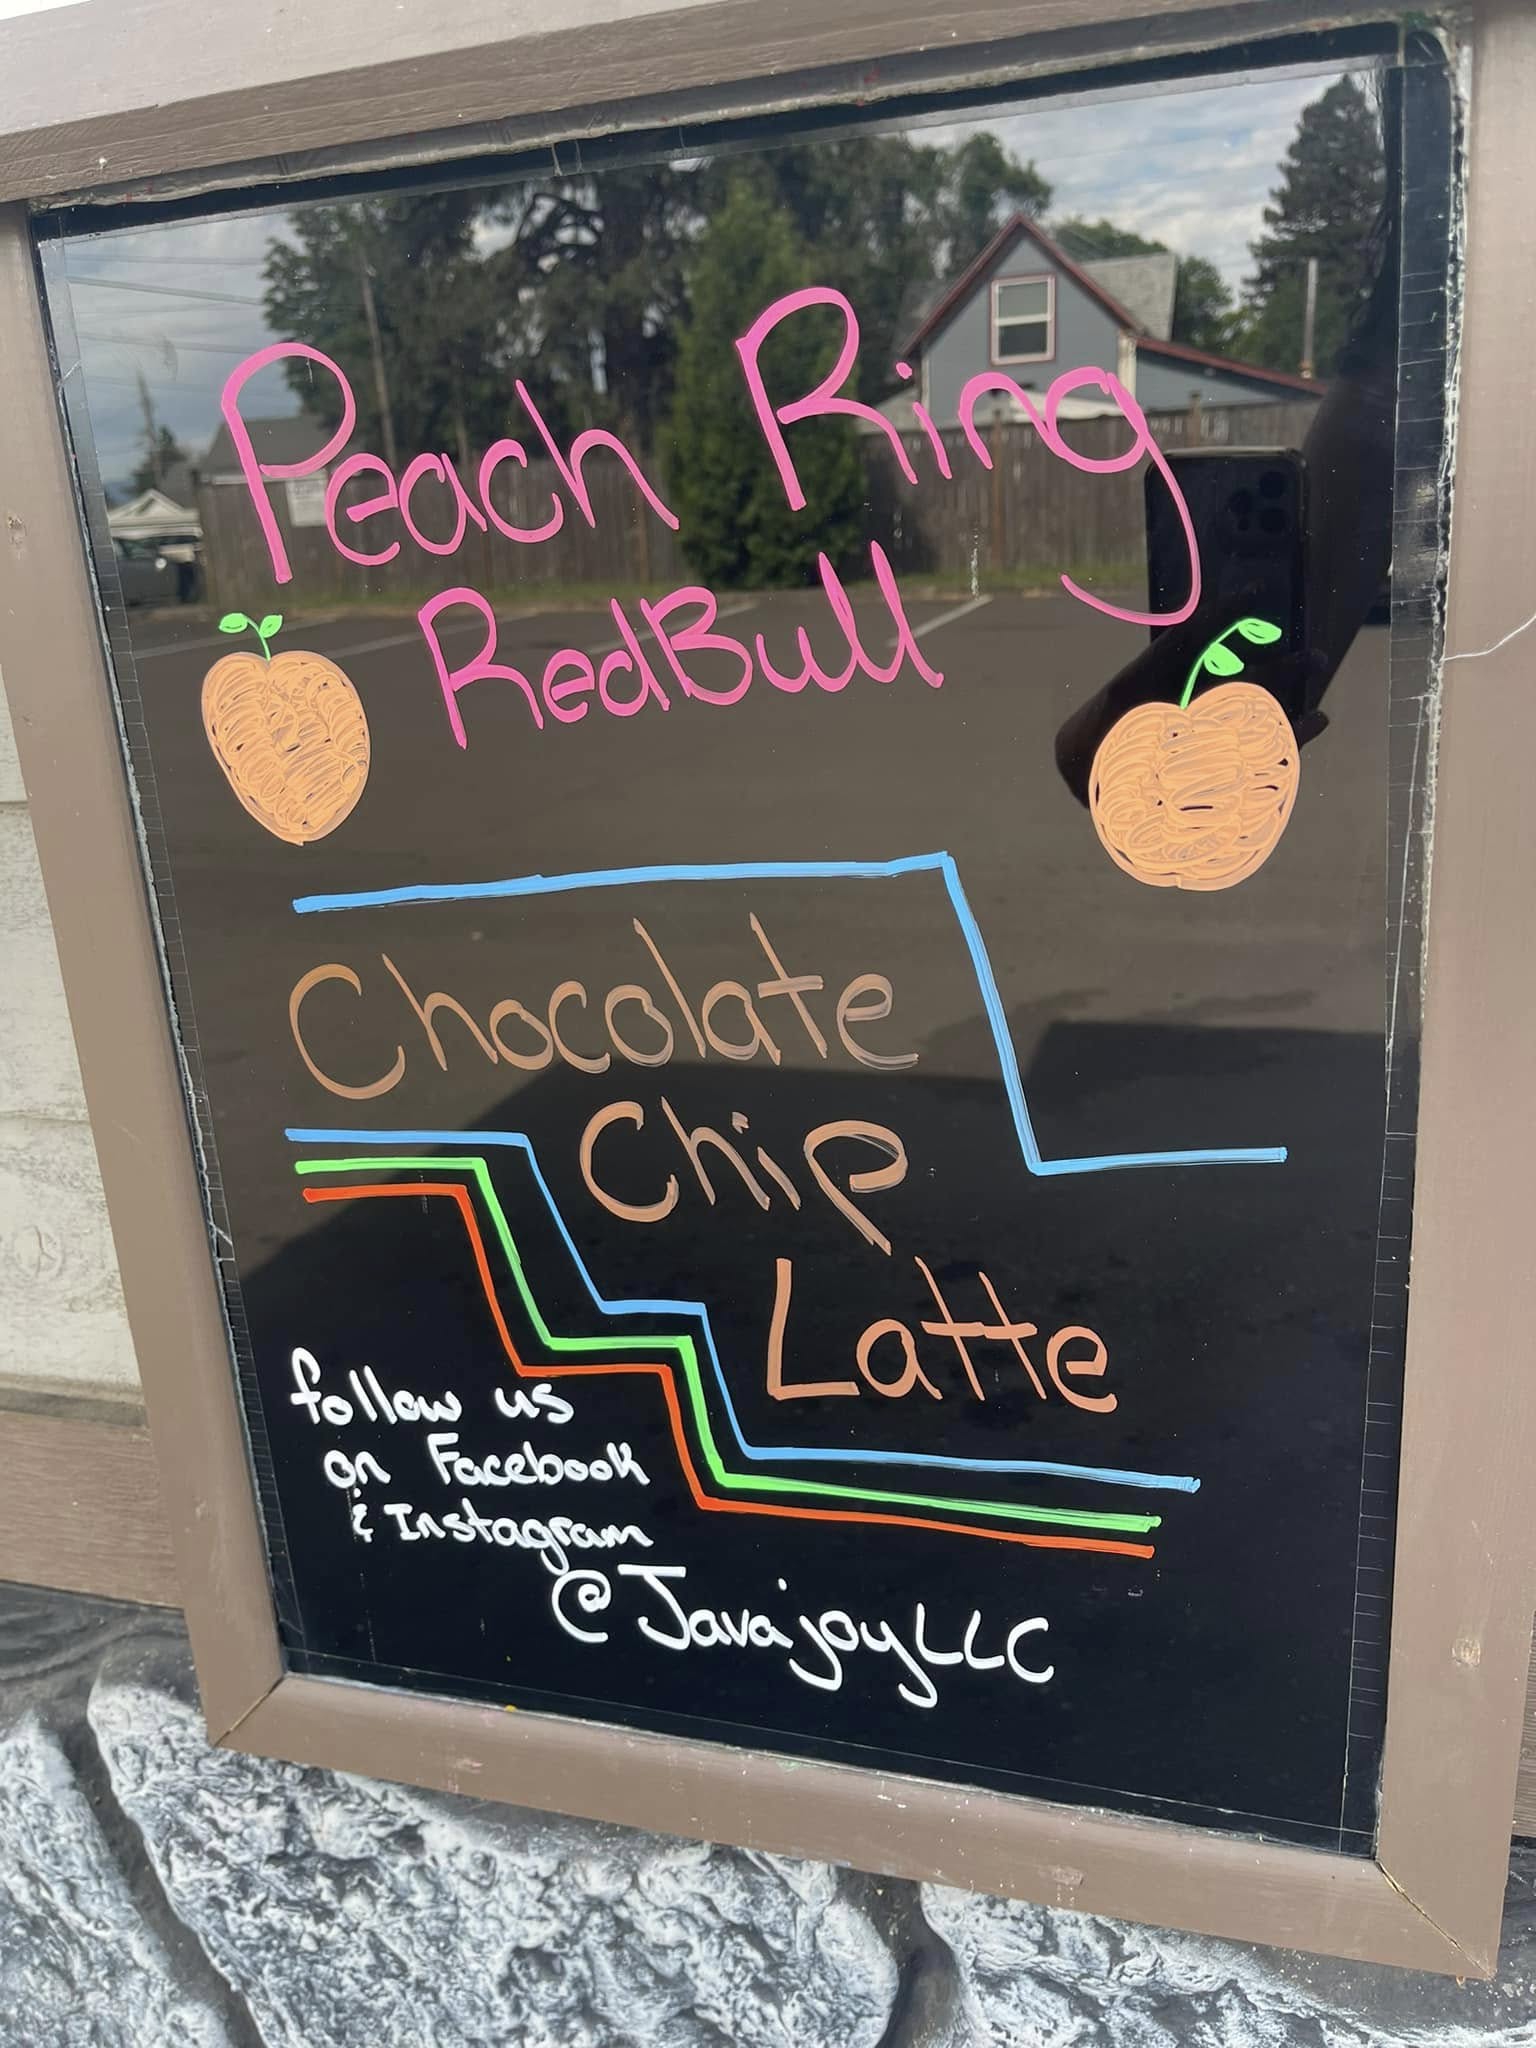 Peach Ring
RedBull
Chocolate
Chip
Latte
follow us
on Facebook
& Instagram
@JavajoyLLC